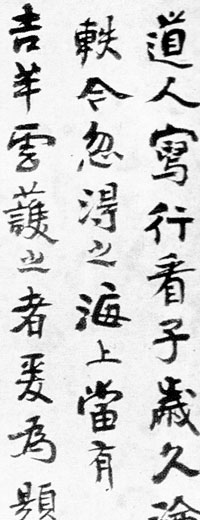 道人寫行看子歲久淪
軼今忽得之海上當有
吉羊雲護之者爰為題